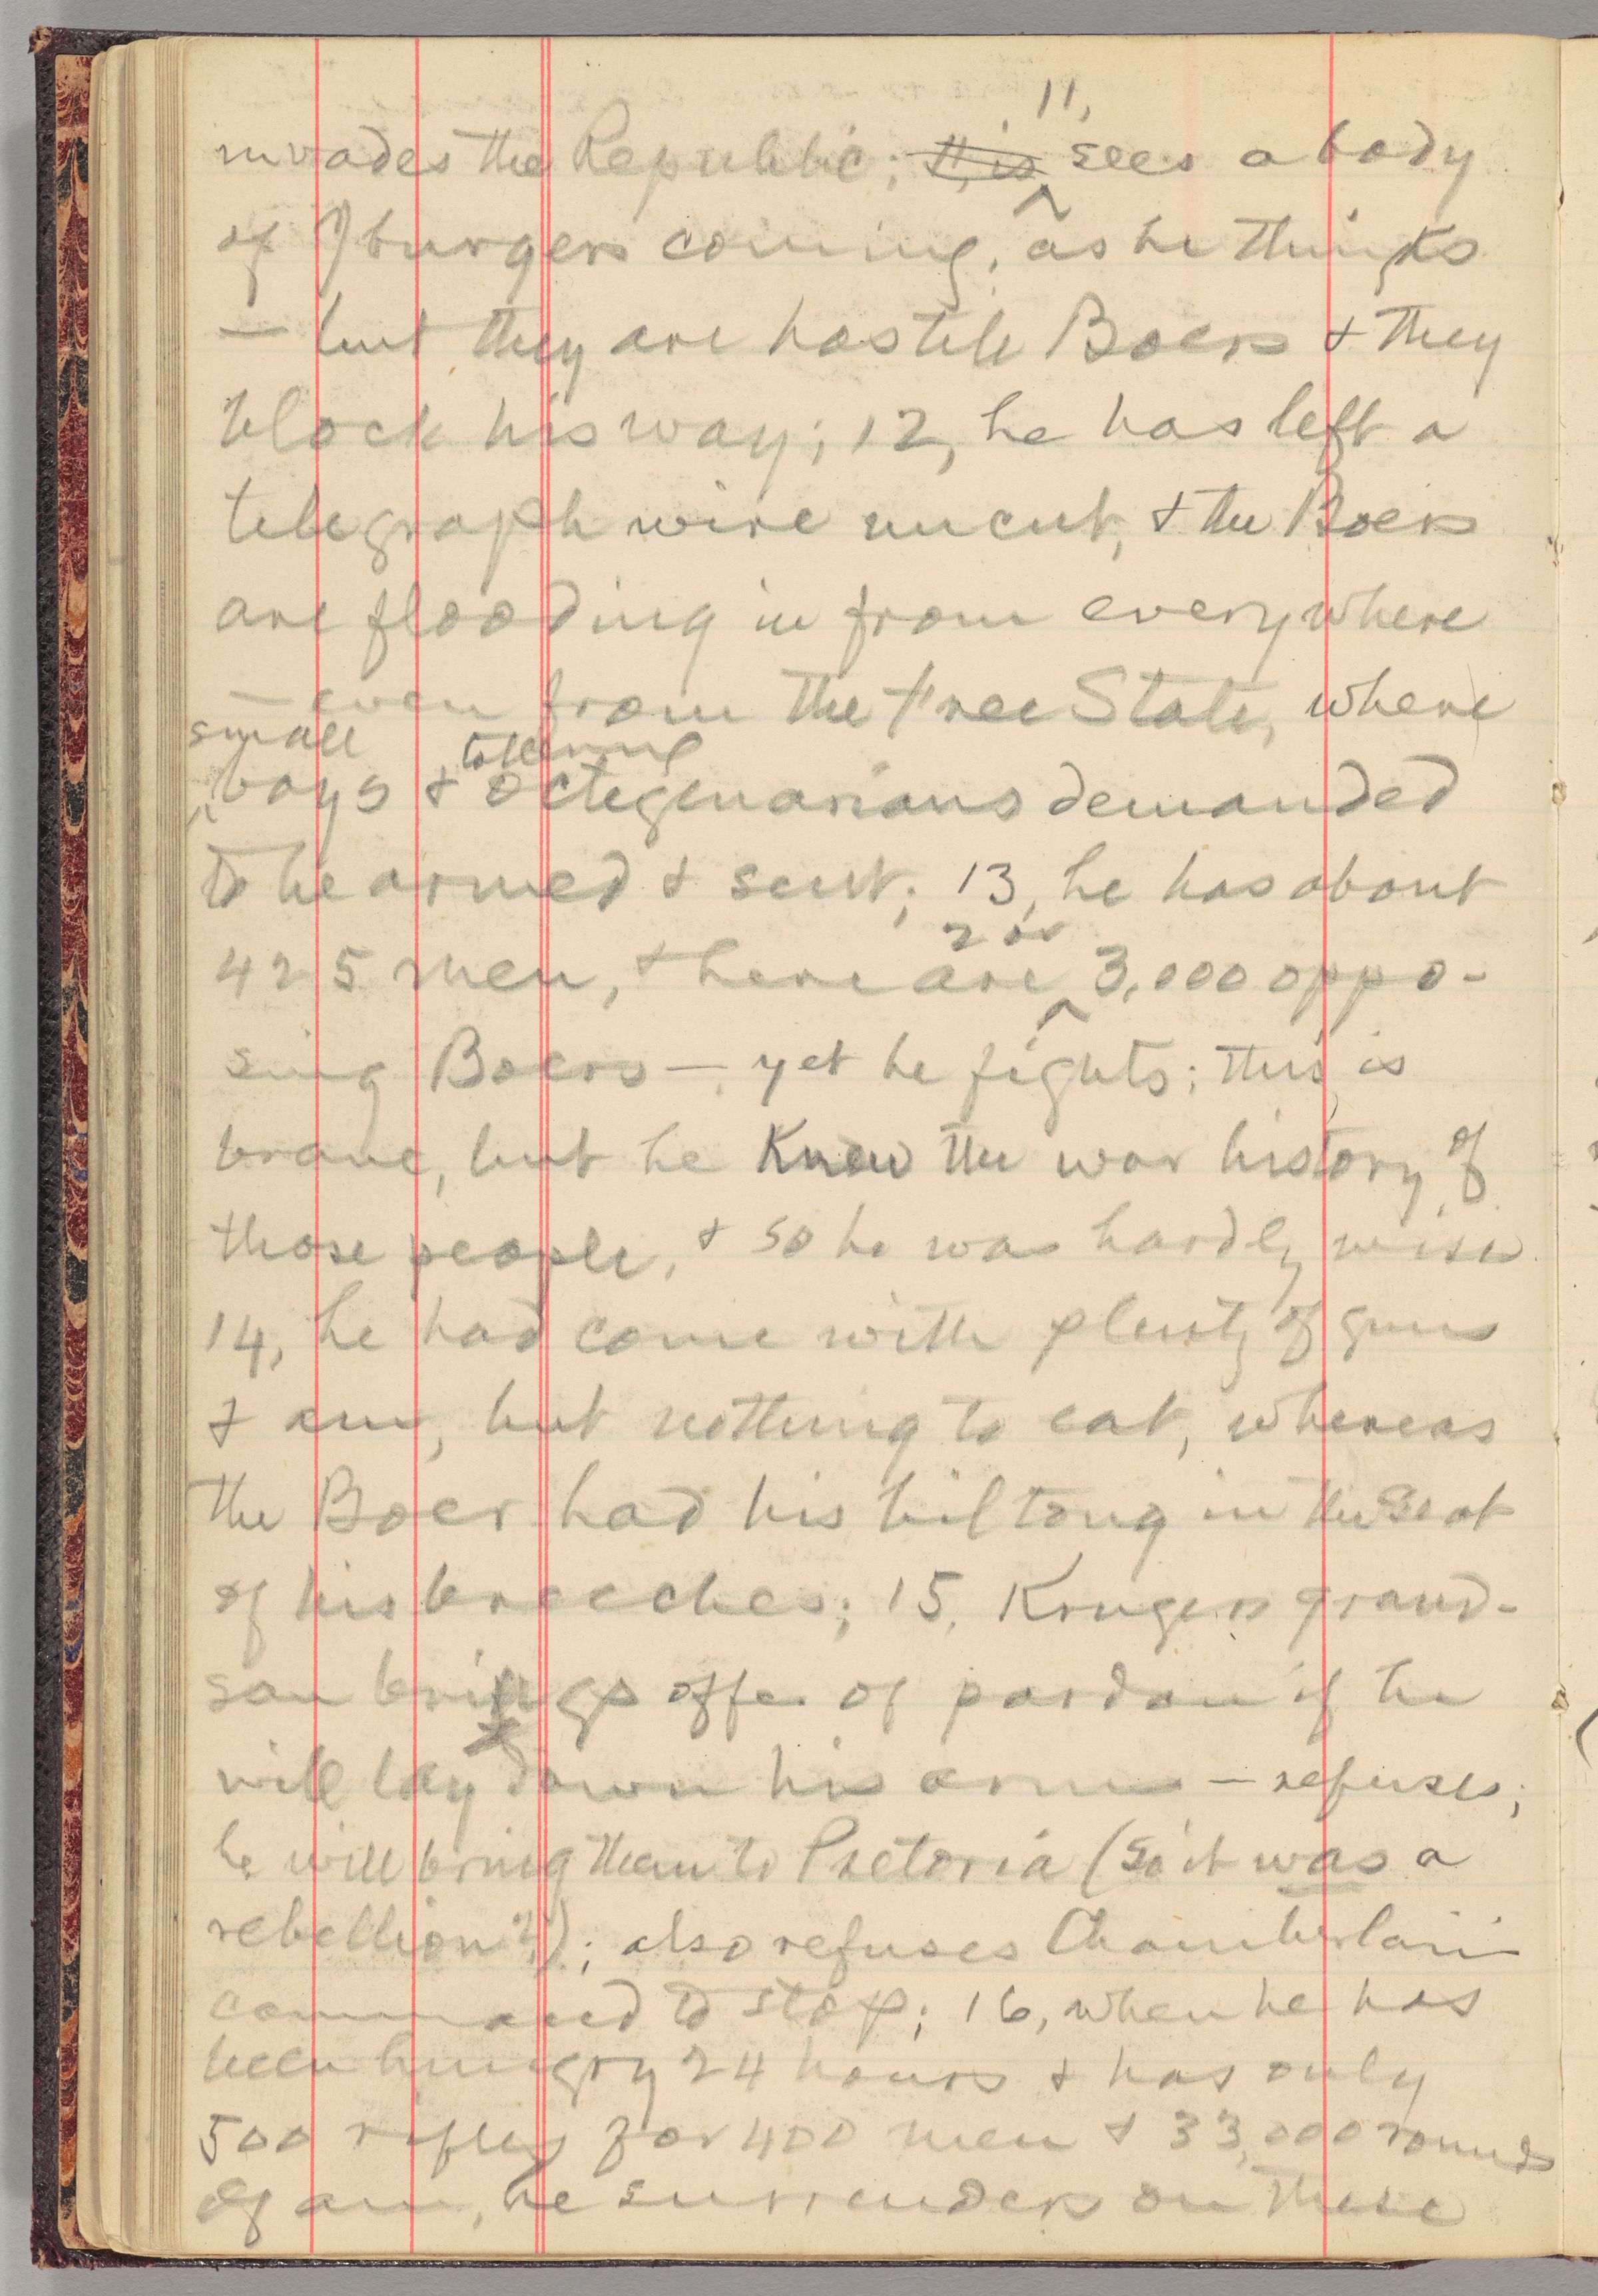 invades the Republic; 11, sees a body
of Jburgers coming, as he thinks
— but they are hostile Boers & they
block his way; 12, he has left a
telegraph wire uncut, & the Boers
are flooding in from everywhere
— even from the Free State, where
small boys & tottering octegenarians demanded
to be armed & sent; 13, he has about
425 men, & here are 2 or 3,000 oppo-
sing Boers — yet he fights; this is
brave, but he knew the war history of
those people, & so he was hardly wise
14, he had come with plenty of guns
& am, but nothing to eat, whereas
the Boer had his biltong in the seat
of his breeches; 15, Krugers grand-
son brings offer of pardon if he
will lay down his arms — refuses;
he will bring them to Pretoria (so it was a
rebellion?); also refuses Chamberlain
command to stop; 16, when he has
been hungry 24 hours & has only
500 rifles for 400 men & 33,000 rounds
of am, he surrenders on these